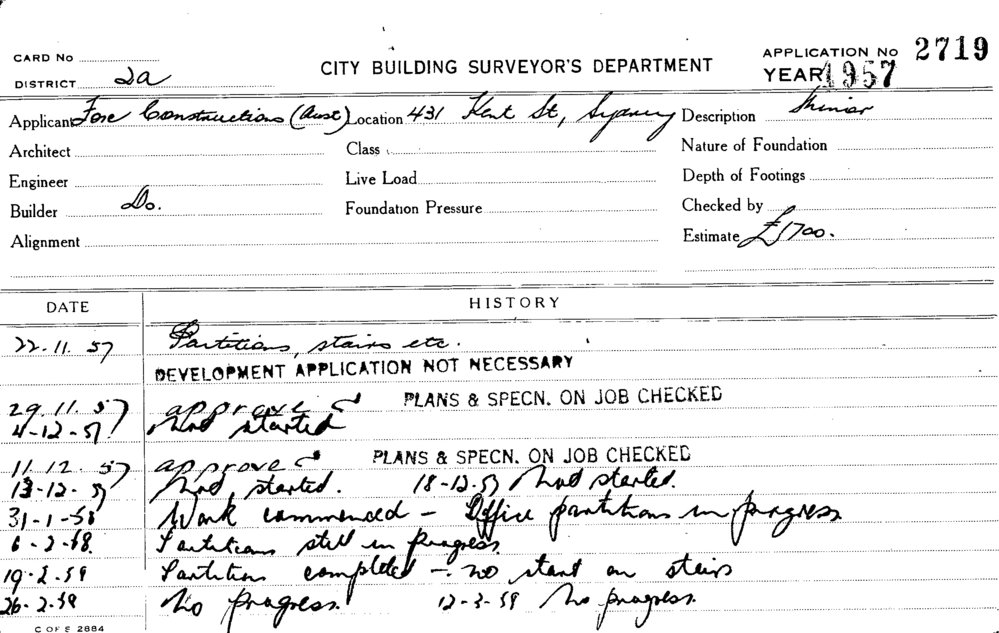 CARD No
CITY BUILDING SURVEYOR'S DEPARTMENT
APPLICATION No 2719
DISTRICT 2a
YEAR 1957
Applicant Constructions (Aust) Location 431 Kent St, Sydney Description Minor
Architect Class Nature of Foundation
Engineer Live Load Depth of Footings
Builder Do. Foundation Pressure Checked by
Alignment Estimate £1700.
DATE HISTORY
22.11.57 Partitions, stairs etc.
DEVELOPMENT APPLICATION NOT NECESSARY
29.11.57 approved PLANS & SPECN. ON JOB CHECKED
4-12-57 Not started
11.12.57 approved PLANS & SPECN. ON JOB CHECKED
13-12-57 Not started. 18-12-57 Not started.
31-1-58 Work commenced - Office partitions in progress
6-2-58. Partitions still in progress.
19-2-58 Partitions completed - no start on stairs
26-2-58 No progress. 12-3-58 No progress.
C OF S 2884